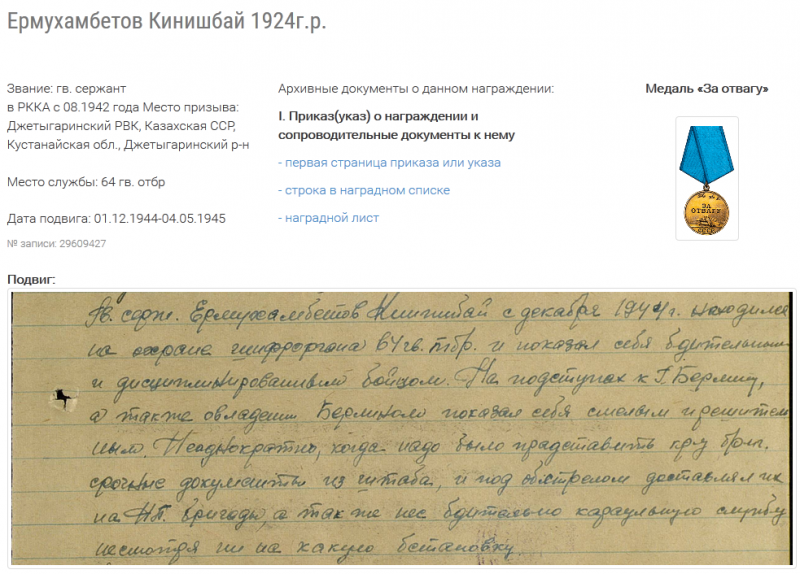 Ермухамбетов Кинишбай 1924г.р.
Звание: гв. сержант
в РККА с 08.1942 года Место призыва:
Джетыгаринский РВК, Казахская ССР,
Кустанайская обл., Джетыгаринский р-н
Место службы: 64 гв. отбр
Дата подвига: 01.12.1944-04.05.1945
№ записи: 29609427
Архивные документы о данном награждении:
I. Приказ(указ) о награждении и
сопроводительные документы к нему
- первая страница приказа или указа
- строка в наградном списке
- наградной лист
Медаль «За отвагу»
ЗА
ОТВАГУ
Подвиг:
Гв. серж. Ермухамбетов Кинишбай с декабря 1944 г. находился
на охране шифроргана 64 гв. тбр. и показал себя бдительным
и дисциплинированным бойцом. На подступах к г. Берлину,
а также овладении Берлином показал себя смелым и решитель
ным. Неоднократно, когда надо было представить к-ру бриг.
срочные документы из штаба, и под обстрелом доставлял их
на НП. бригады, а так же нес бдительно караульную службу
несмотря ни на какую бстановку.